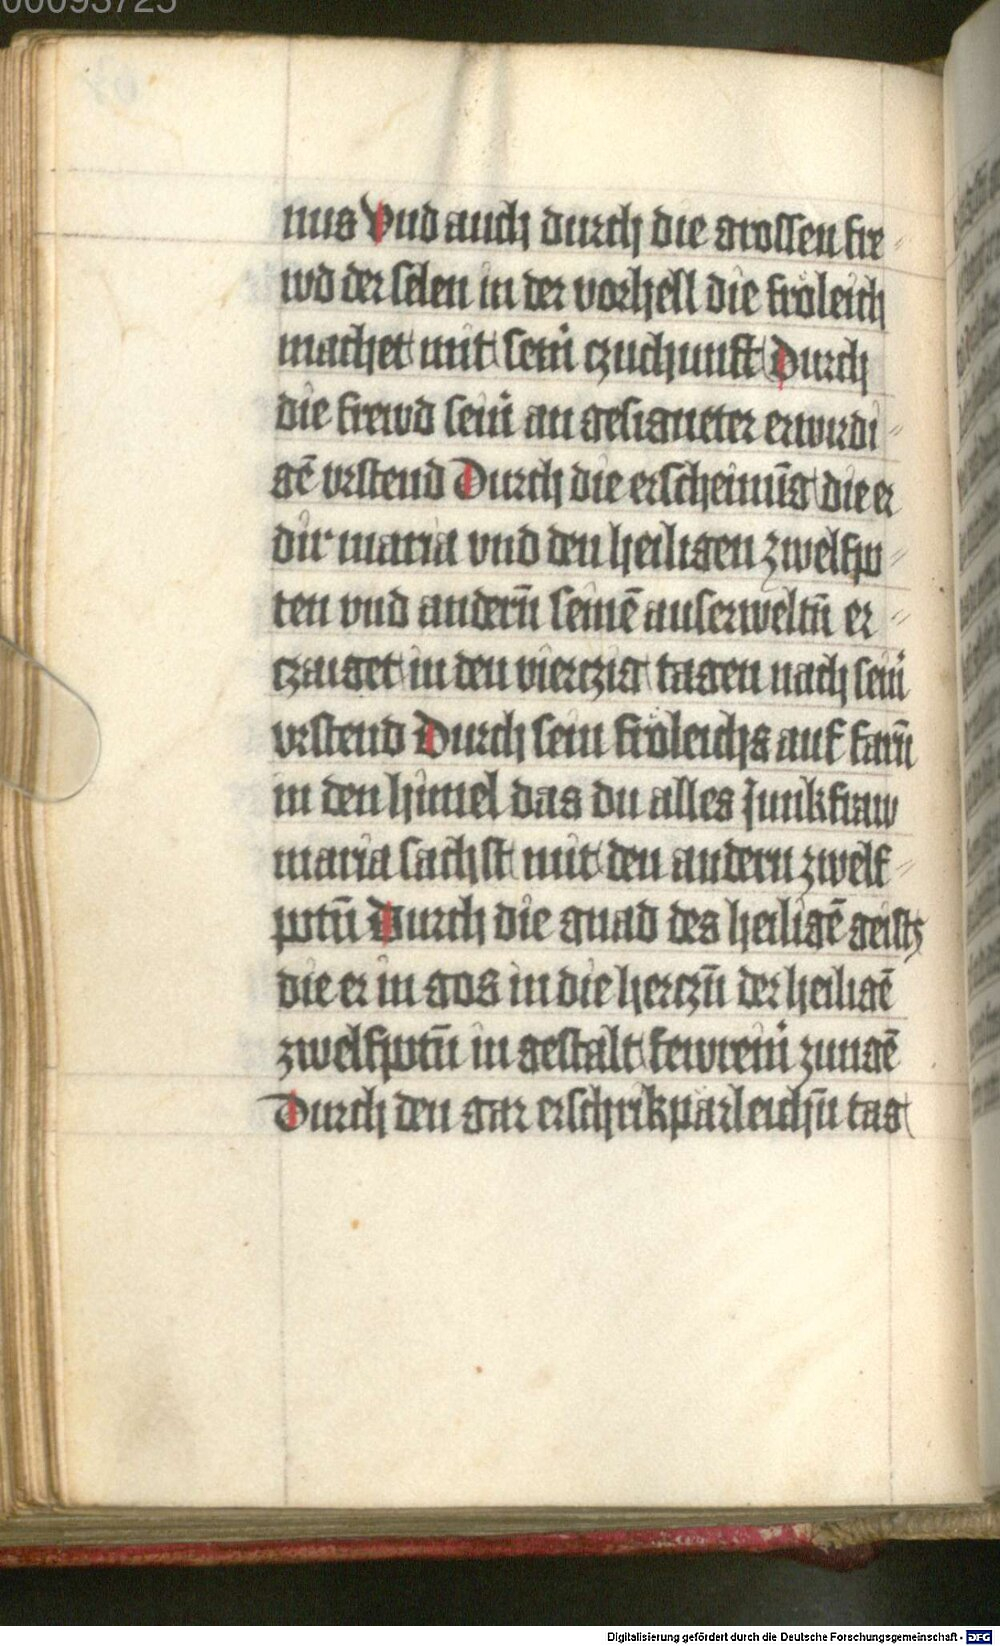 00093725
nus Vnd auch durch die grossen fre⸗
wd der selen in der vorhell die fröleich
machet mit sein̄ czuchunft Durch
die frewd sein̄ an gesigneter erwirdi⸗
gē vrstend Durch die erscheinūg die er
dir maria vnd den heiligen zwelfpo⸗
ten vnd andern̄ seinē auserweltn̄ er⸗
czaiget in den vierczig tagen nach sein̄
vrstend Durch sein fröleichs auf farn̄
in den himel das du alles Junkfraw
maria sachst mit den andern zwelf⸗
potn̄ Durch die gnad des heiligē geistz
die er in gos in die herczn̄ der heiligē
zwelfpotn̄ in gestalt fewrein̄ zungē
Durch den gar erschrikparleichn̄ tag
Digitalisierung gefördert durch die Deutsche Forschungsgemeinschaft - DFG